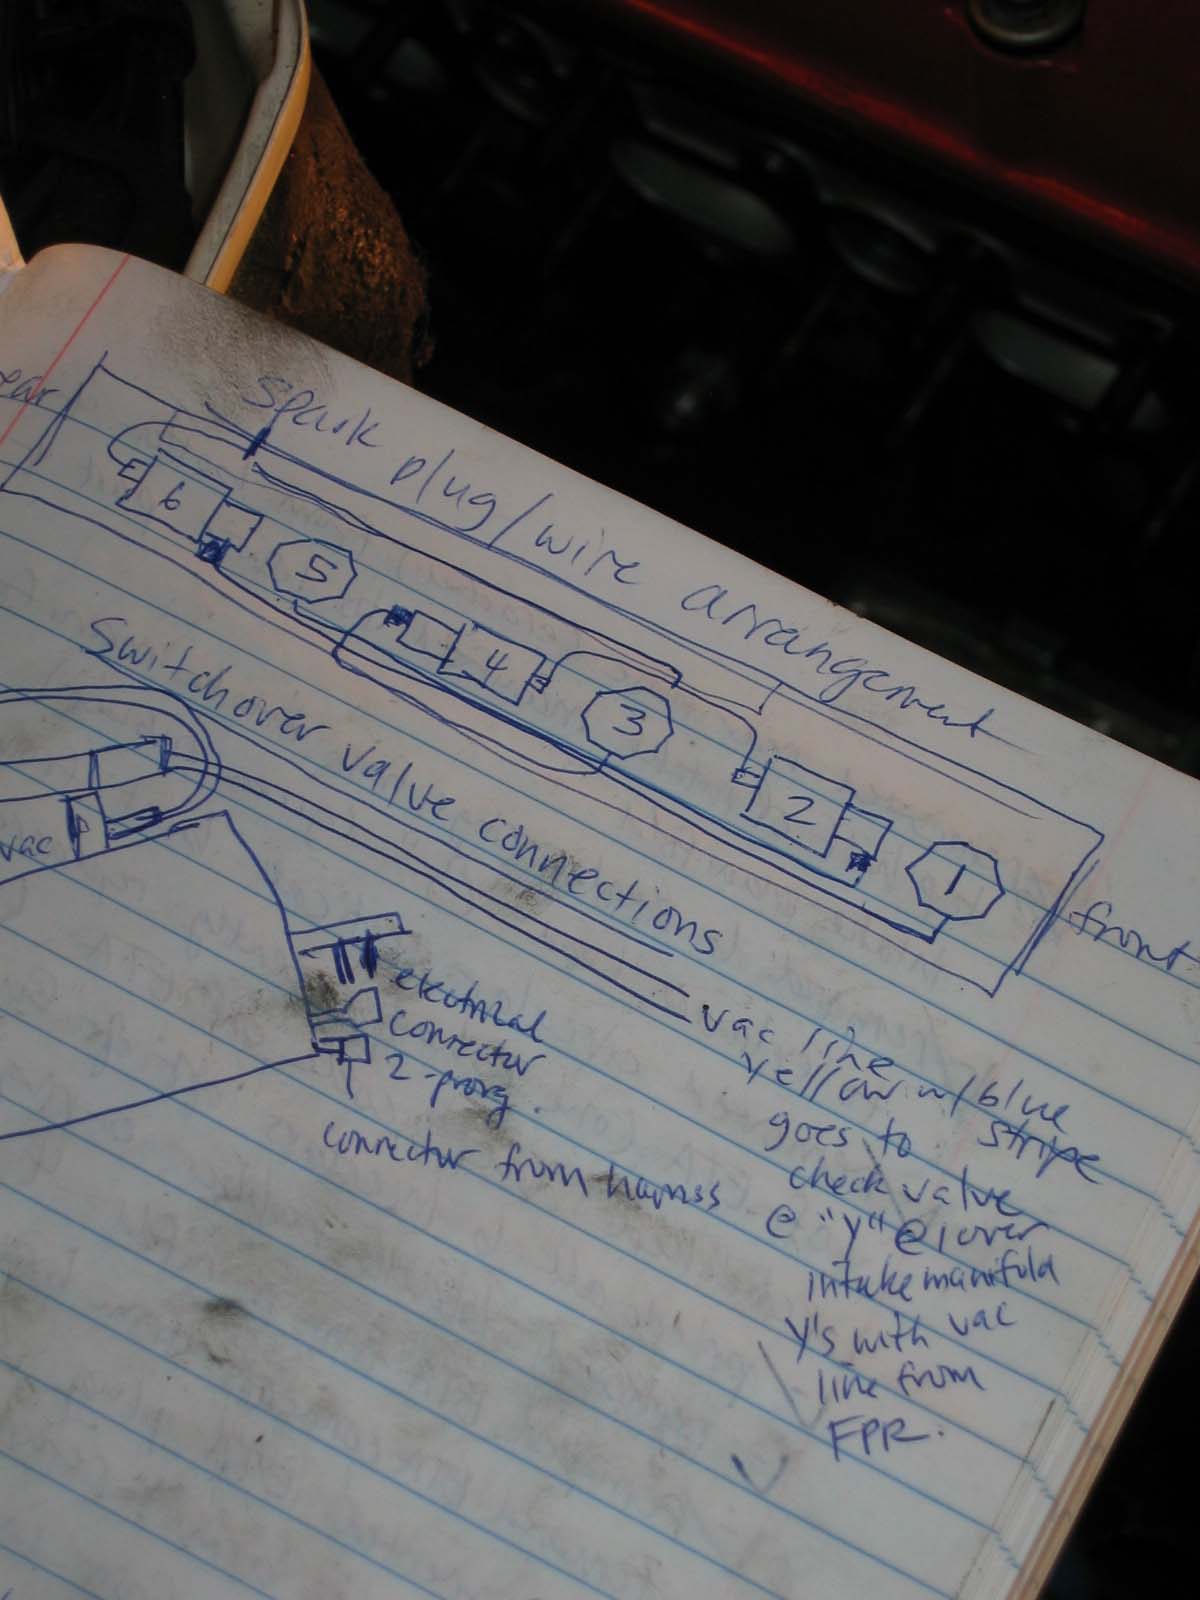 Spark plug/wire arrangement
ear
6
5
4
3
2
1
front
Switchover valve connections
vac
electrical
connector
2-prong.
connector from harness
vac line
yellow w/blue
stripe
goes to
check valve
@ "Y" @
intake manifold
Y's with vac
line from
FPR.